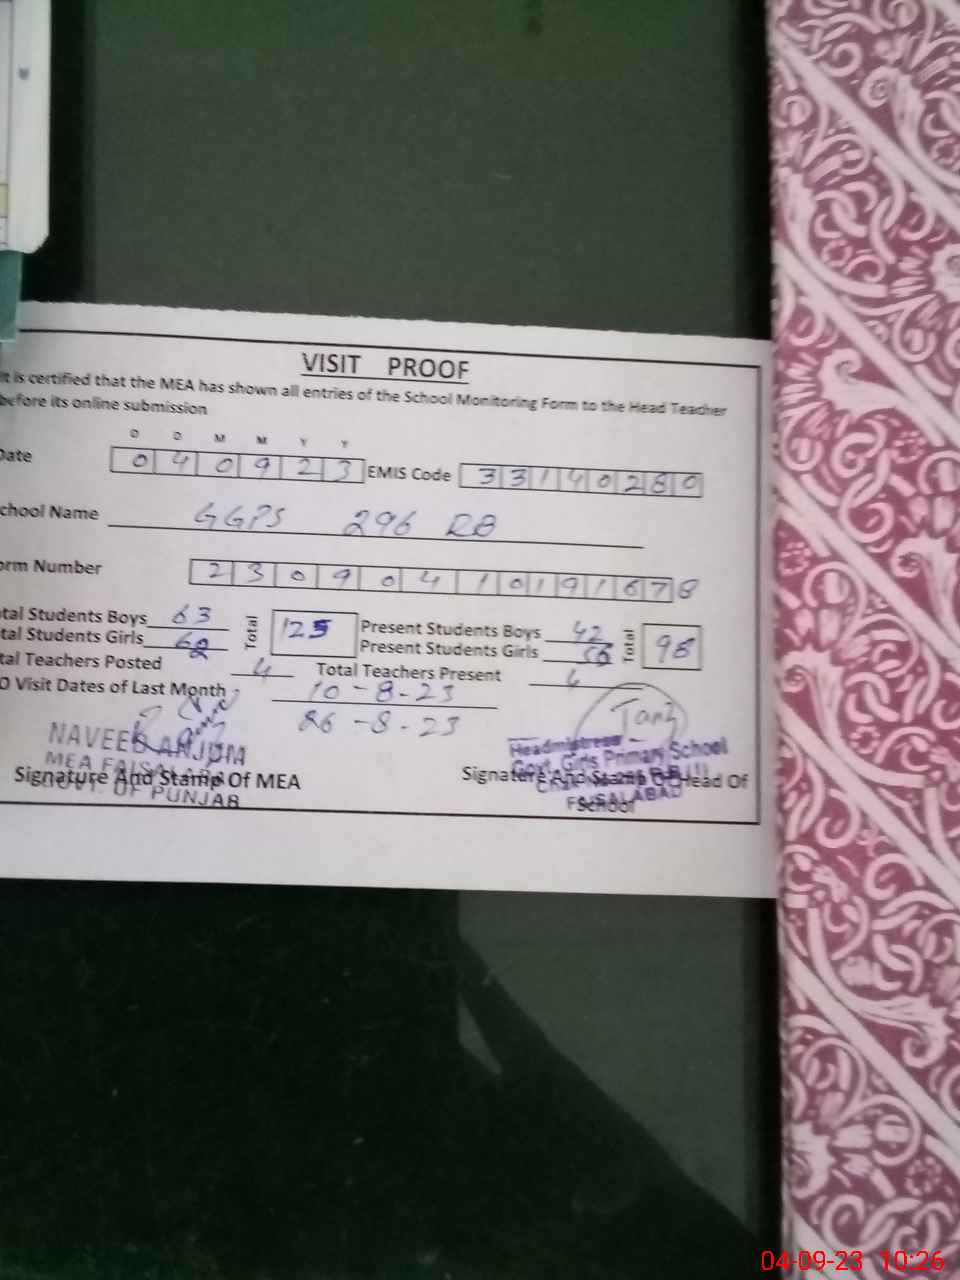 VISIT PROOF
it is certified that the MEA has shown all entries of the School Monitoring Form to the Head Teacher
before its online submission
D D M M Y Y
Date 0 4 0 9 2 3 EMIS Code 3 3 1 4 0 2 8 0
chool Name GGPS 296 RB
orm Number 2 3 0 9 0 4 1 0 1 9 1 6 7 8
tal Students Boys 63 Total 125 Present Students Boys 42 Total 98
tal Students Girls 62 Present Students Girls
tal Teachers Posted 4 Total Teachers Present 4
O Visit Dates of Last Month 10-8-23
26-8-23
NAVEED ANJUM
MEA FAISALABAD
GOVT. OF PUNJAB
Signature And Stamp Of MEA
Headmistress
Govt. Girls Primary School
FAISALABAD
Signature And Stamp Of Head Of
School
04-09-23 10:26